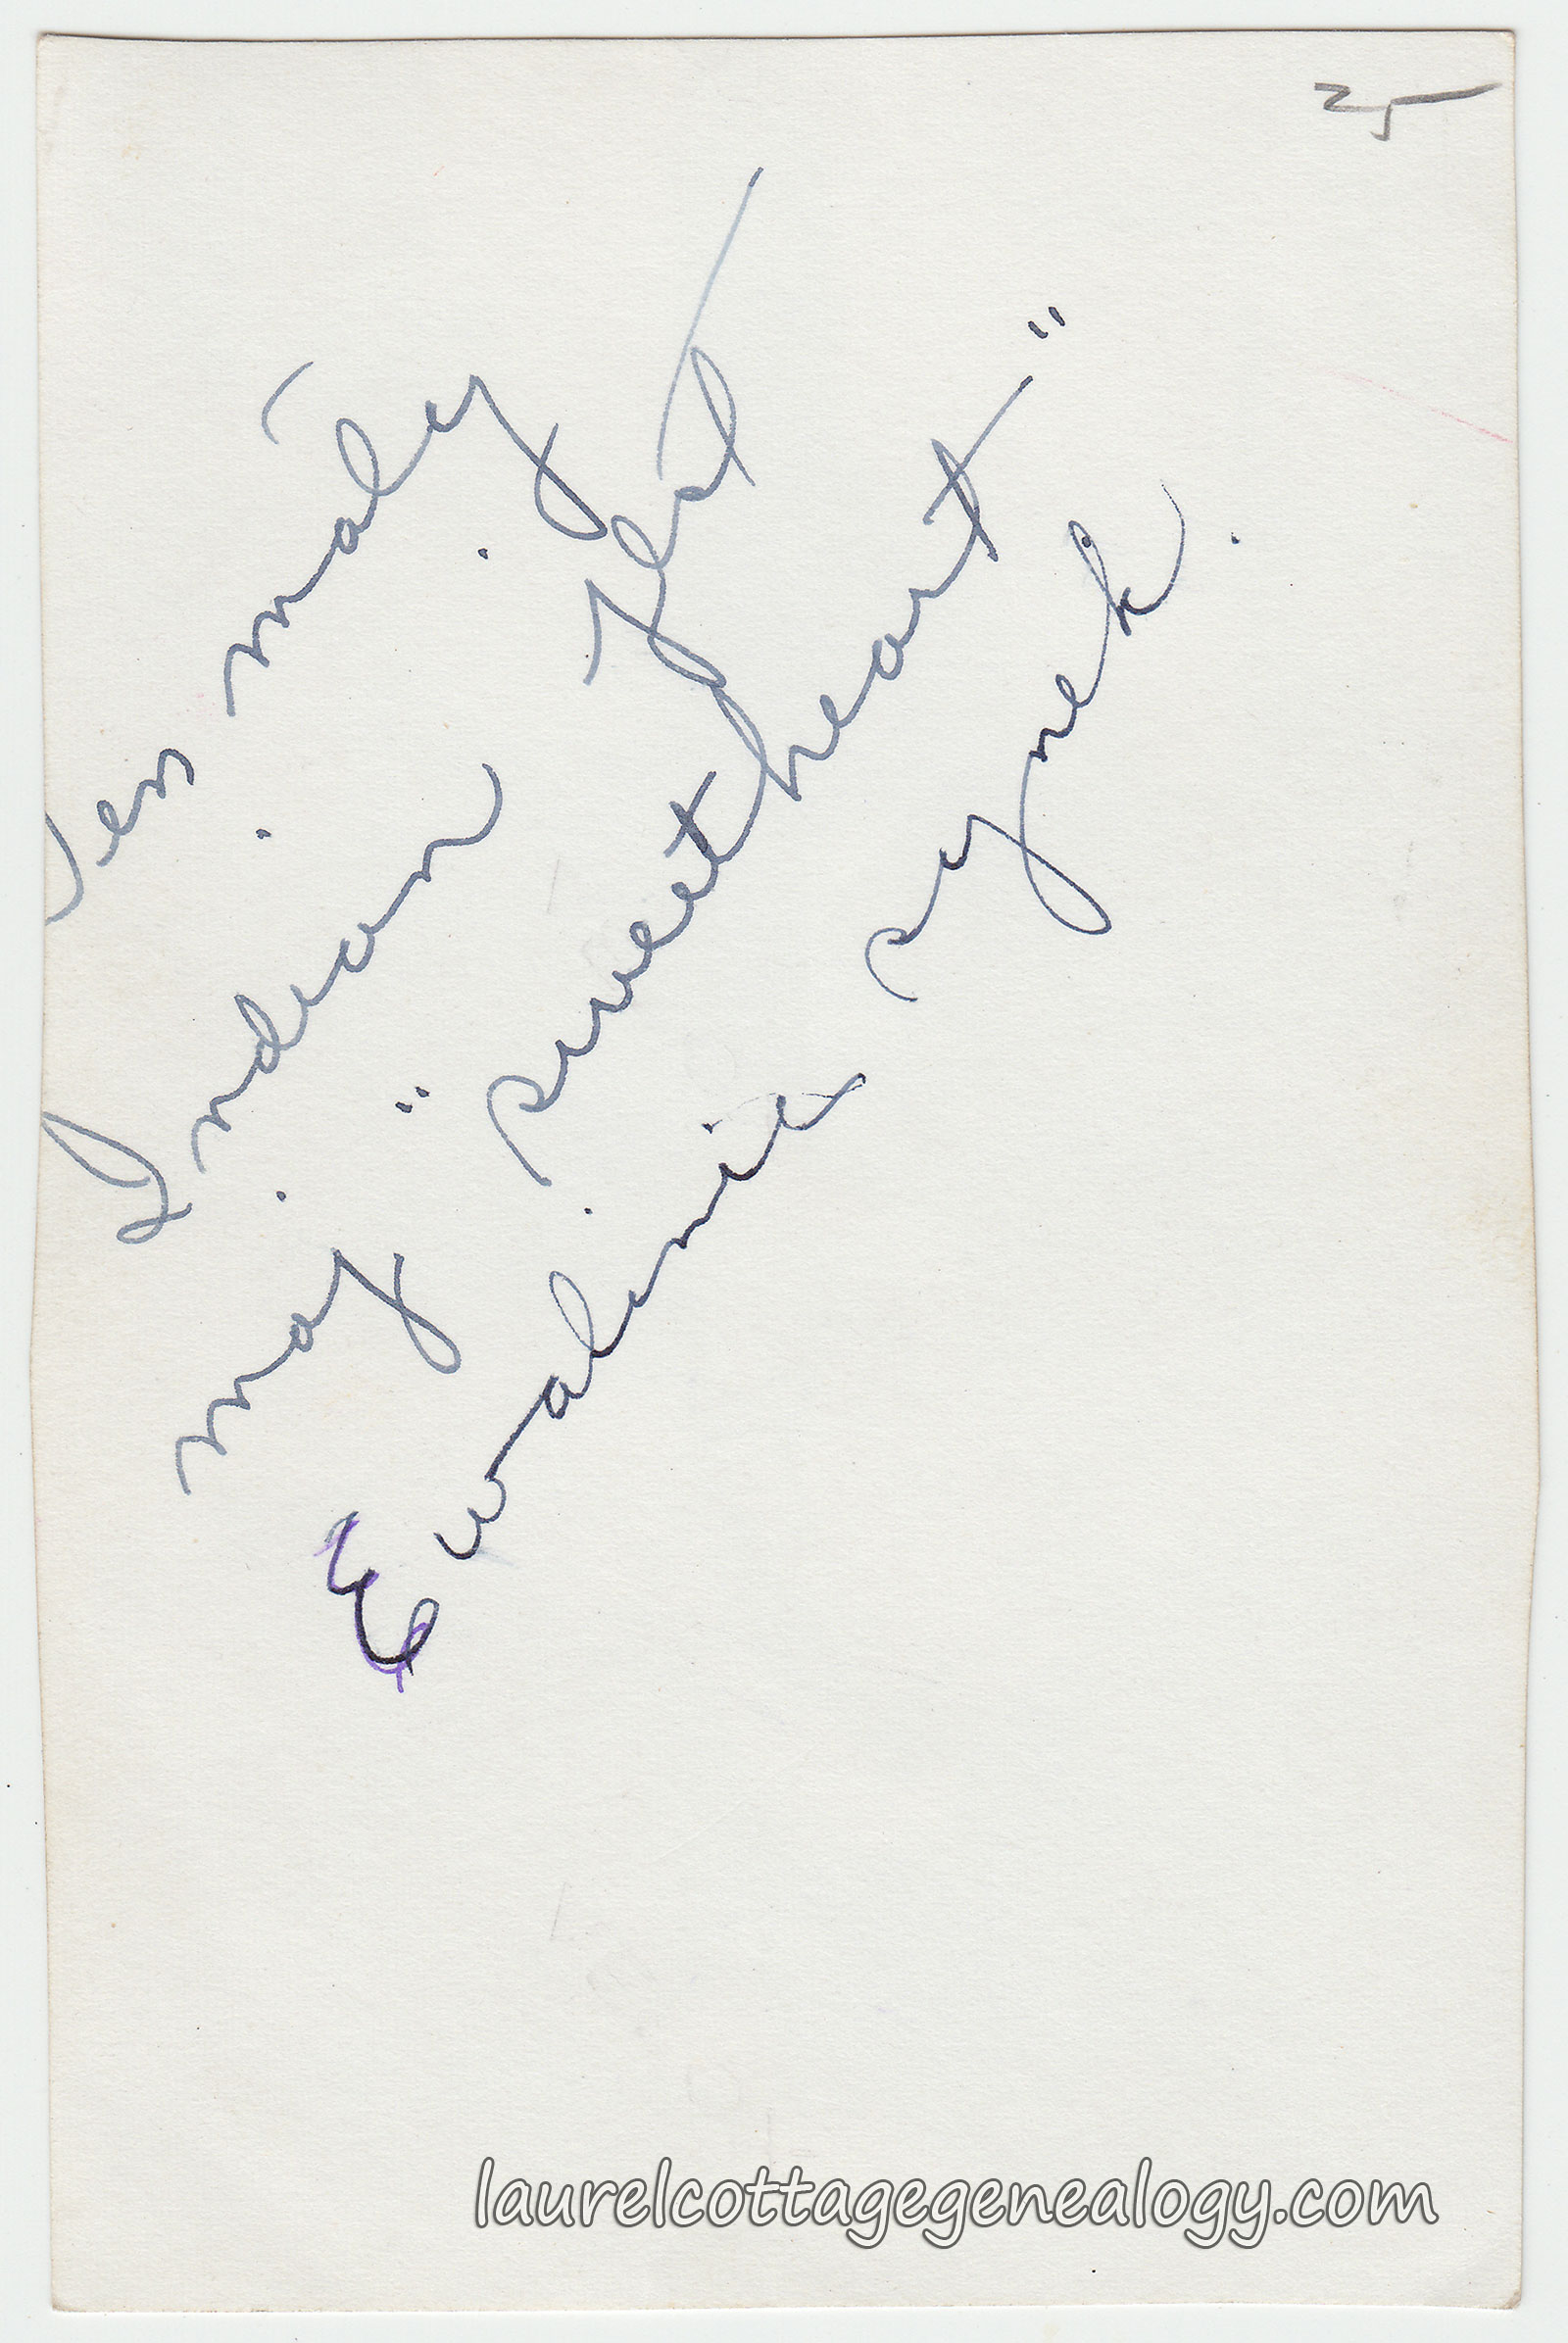 25
Ten mały
Indian jest
mój "sweetheart"
Ewalinie synek.
laurelcottagegenealogy.com